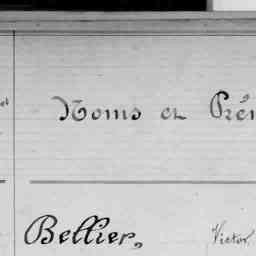 Noms et Prén
Bellier, Victor,